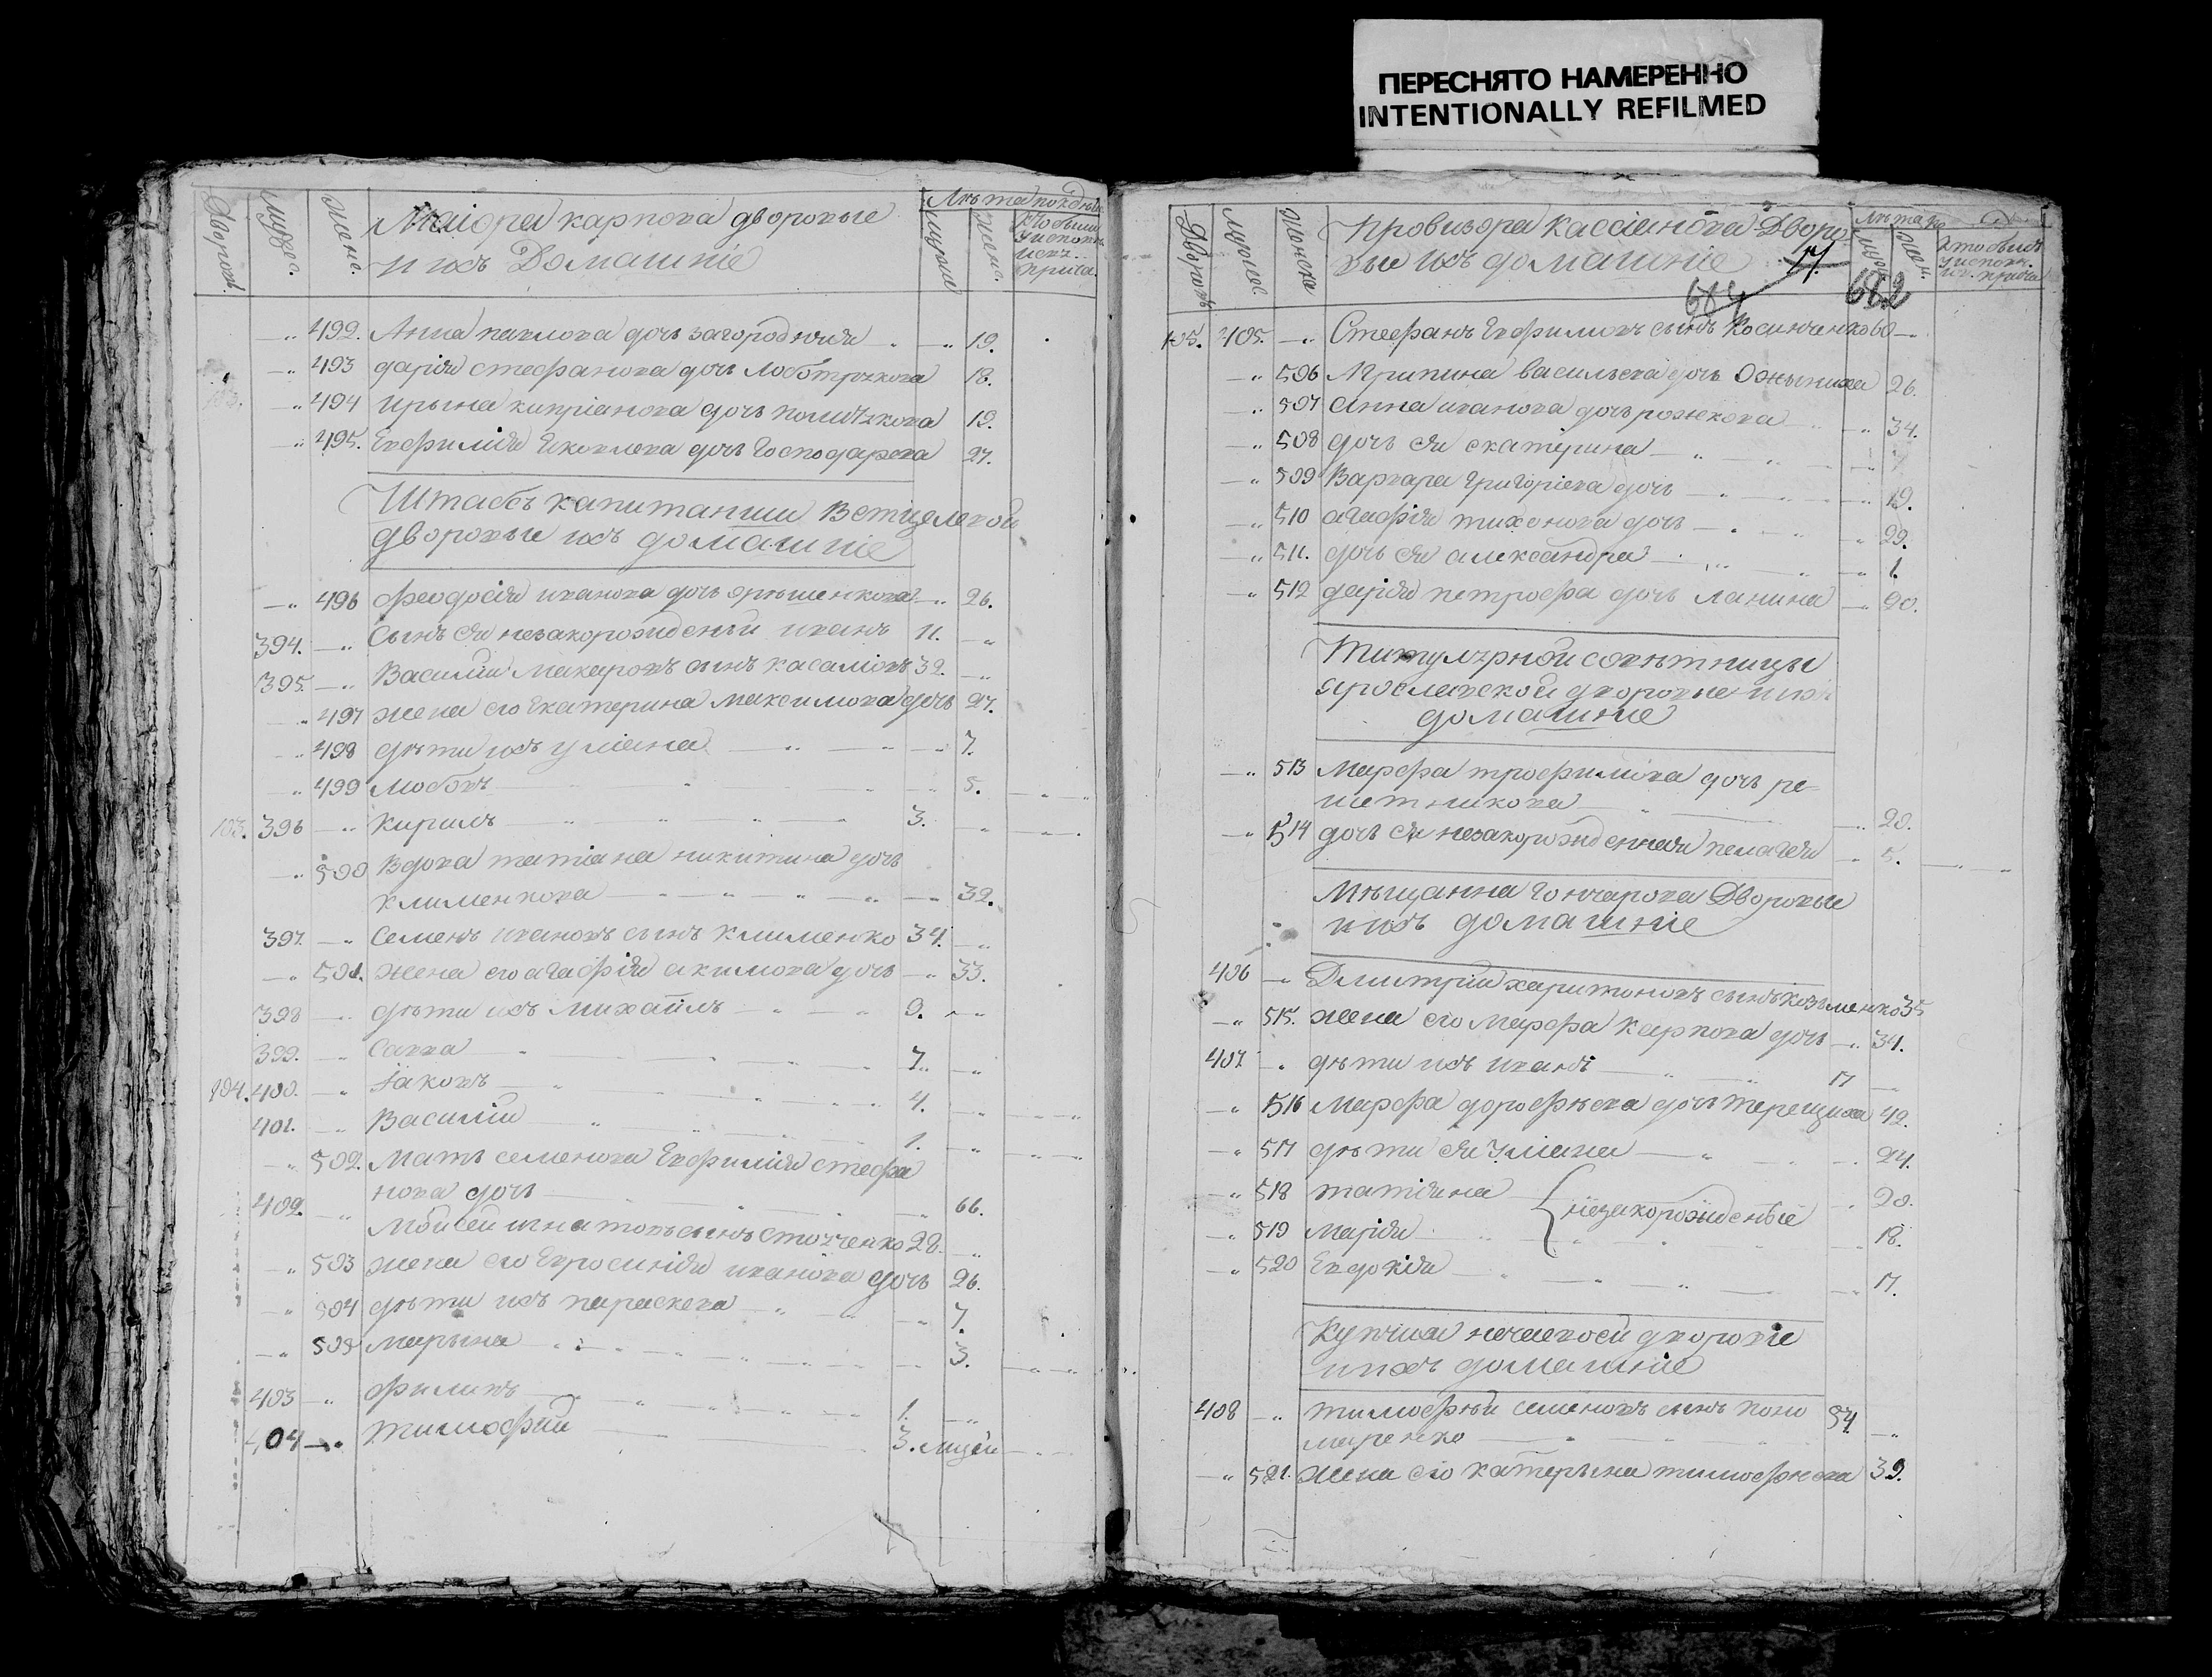 ПЕРЕСНЯТО НАМЕРЕННО
INTENTIONALLY REFILMED
Дворовъ.
Мужес.
Женс.
Маіора карпова дворовые
и ихъ Домашніе
Лѣта
Женс.
492. Анна павлова дочь загородняя 19.
493 дарія стефанова дочь 18.
494 Ирына кипріанова дочь 19.
495. Евфимія Яковлева дочь Господарева 27.
Штабсъ капитанши
дворовые ихъ домашніе
496 феодосія иванова дочь 26.
394. Сынъ ея незакорожденый иванъ 11.
395. Василій Макаровъ сынъ касаліовъ 32.
497 жена его Екатерина максимова дочь 27.
498 дѣти ихъ уліана 7.
499 любовь 5.
103. 396 Кирилъ 3.
500 Вдова татіана никитина дочь
клименкова 32.
397. Семенъ ивановъ сынъ клименко 34.
501. жена его агафія акимова дочь 33.
398 дѣти ихъ михаилъ 9.
399. Савва 7.
104. 400. Іаковъ 4.
401. Василій 1.
502. Мать семенова Евфимія стефа
нова дочь 66.
402. Мойсей игнатовъ сынъ 28.
503 жена его Евросинія иванова дочь 26.
504 дѣти ихъ параскева 7.
505 марына 3.
403 филипъ 1.
404 тимофей 3. мцей
Дворовъ
Мужес.
Женска
Провизора касаинова Дворо
вые ихъ домашніе
684
682
105. 405. Стефанъ Евфимовъ сынъ Косинченково
506 Агрипина васильева дочь 26.
507 Анна иванова дочь рожкова 34.
508 дочь ея екатерина
509 Варвара григоріева дочь 19.
510 агафія тихонова дочь 29.
511. дочь ея александра 1.
512 дарія петрофа дочь ланина 20.
Титулярной совѣтницы
ярославской дворовые и ихъ
домашніе
513 Марфа трофимова дочь ре
шетникова 20.
514 дочь ея незакорожденная пелагея 5.
Мѣщанина Гончарова Дворовые
и ихъ домашніе
406 Дмитрій харитоновъ сынъ козьменко 35
515. жена его марфа карпова дочь 34.
407. дѣти ихъ иванъ 17
516 Марфа дорофѣева дочь терещиха 42.
517 дѣти ея Уліана 24.
518 татіяна 20.
незакорожденые
519 Марія 18.
520 Евдокія 17.
Купчихи нечаевой дворовіе
и ихъ домашніе
408 тимофѣй семеновъ сынъ поно
маренко 54
521. жена его катерына тимофѣева 39.